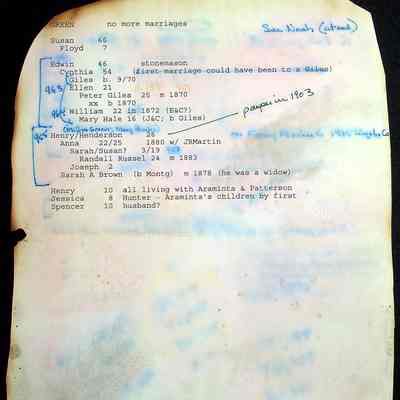 GREEN no more marriages
Susan 66
Floyd 7
Edwin 46 stonemason
Cynthia 54 (first marriage could have been to a Giles)
Giles b. 9/70
Ellen 21
Peter Giles 25 m 1870
xx b 1870
William 22 in 1872 (E&C?)
Mary Hale 16 (J&C; b Giles)
pauper in 1903
Henry/Henderson 26
Anna 22/25 1880 w/ JRMartin
Sarah/Susan? 3/19
Randall Russel 24 m 1883
Joseph 2
Sarah A Brown (b Montg) m 1878 (he was a widow)
Henry 10 all living with Araminta & Patterson
Jessica 8 Hunter - Araminta's children by first
Spencer 10 husband?